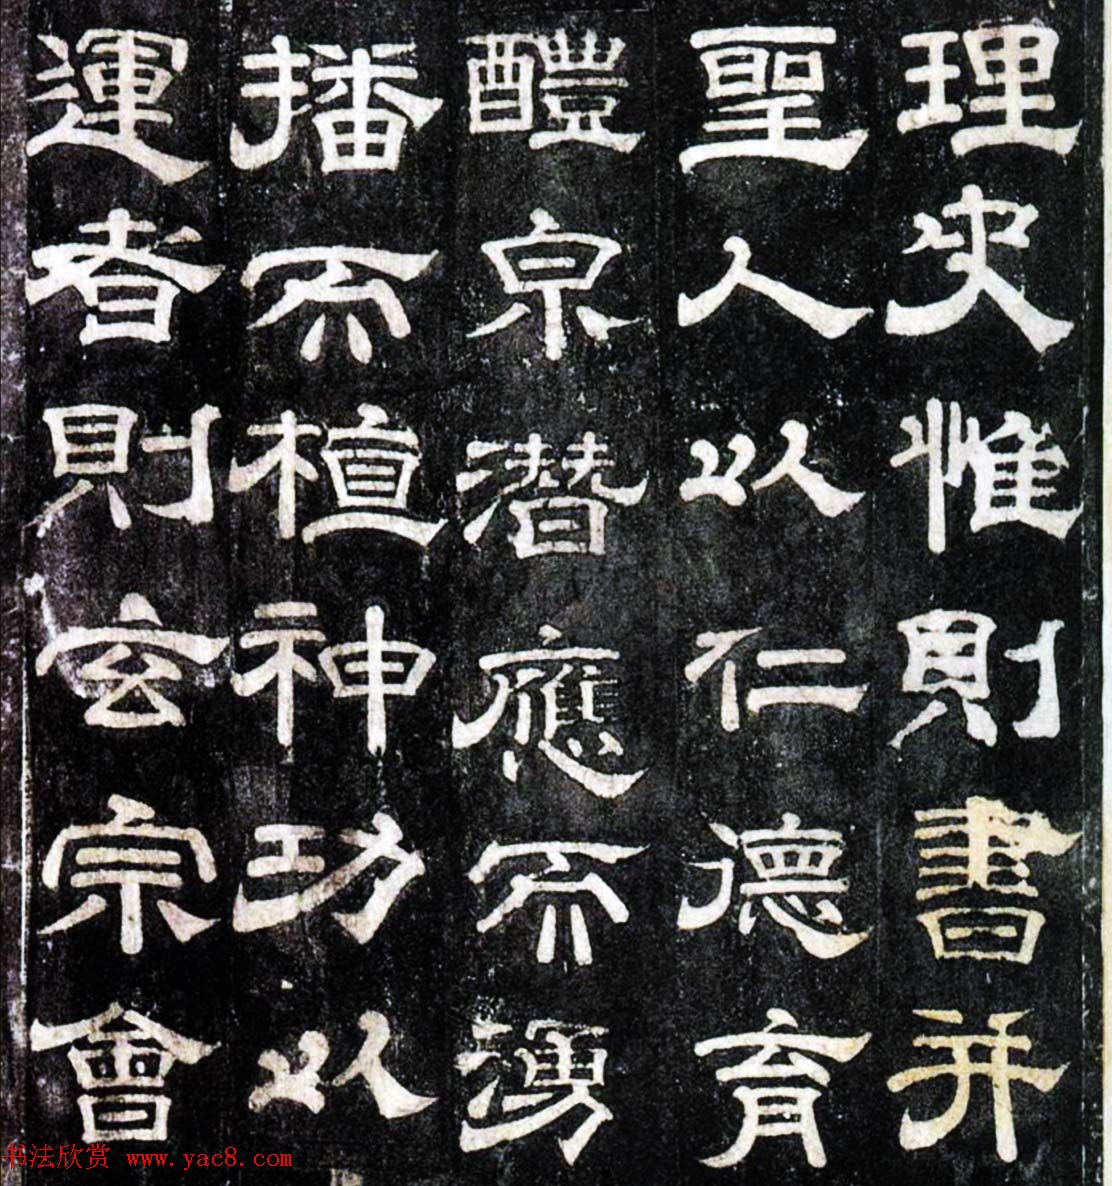 理史惟則書并
聖人以仁德育
醴泉潛應不湧
播不檀神功以
運者則玄宗會
书法欣赏 www.yac8.com